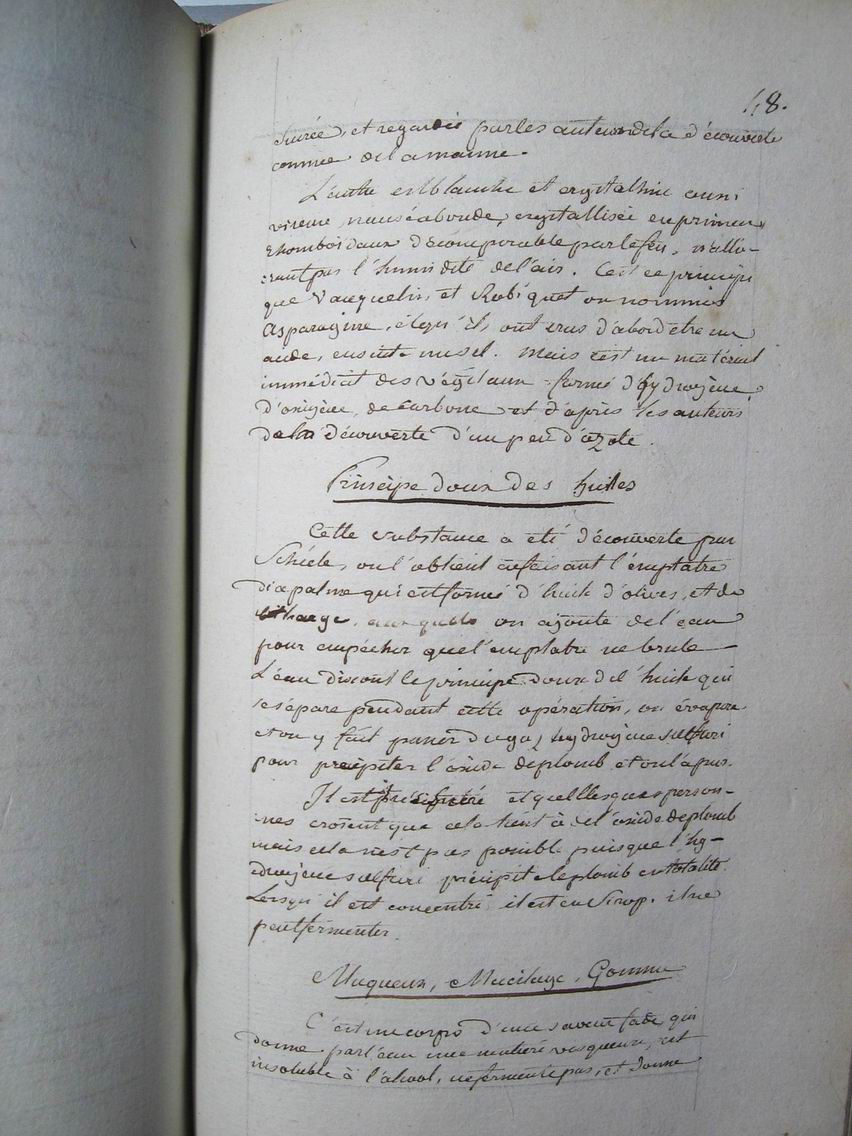 48.
Sucrée, et regardée par les auteurs de la découverte
comme de la manne.
L'autre est blanche et crystalline aussi
vireuse, nauséabonde, crystallisée en prismes
Rhomboïdaux décomposable par le feu, n'atti-
rant pas l'humidité de l'air. C'est ce principe
que Vauquelin, et Robiquet on nommés
Asparagine, et qu'ils ont crus d'abord être un
acide, ensuite un sel. Mais c'est un matériel
immédiat des végétaux formé d'hydrogène,
d'oxigène, de carbone et d'après les auteurs
de la découverte d'un peu d'azote.
Principe doux des huiles
Cette substance a été découverte par
Schéele, on l'obtient en faisant l'emplatre
diapalme qui est formé d'huile d'olives, et de
litharge, auxquels on ajoute de l'eau
pour empécher que l'emplatre ne brule
L'eau dissout le principe doux de l'huile qui
se sépare pendant cette opération, on évapore
et on y fait passer du gaz hydrogène sulfuré
pour précipiter l'oxide de plomb et on l'a pur.
Il est et quelques person-
nes croient que cela tient à de l'oxide de plomb
mais cela n'est pas possible puisque l'hy-
drogène sulfuré précipite le plomb en totalité.
Lorsqu'il est concentré il est en Sirop. il ne
peut fermenter.
Muqueux, Mucilage, Gomme
C'est un corps d'une saveur fade, qui
donne par l'eau une matière visqueuse, est
insoluble à l'alcool, ne fermente pas, et donne